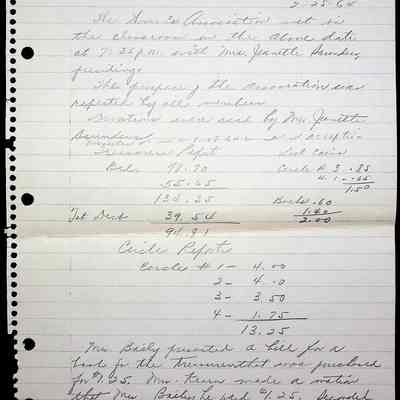 2-25-64
The Service Association met in
the classroom on the above date
at 7:35 p.m. with Mrs. Jeanette Saunders
presiding.
The purpose of the association was
repeated by all members.
Devotions were said by Mrs. Jeanette
Saunders.
Treasurers Report
Bal. 78.70
55.65
134.35
Tot Disb 39.54
94.81
Circle # 3 .85
1.50
Books .60
1.40
2.00
Circle Reports
Circle # 1 - 4.00
2 - 4.00
3 - 3.50
4 - 1.75
13.25
Mrs. Baily presented a bill for a
book for the treasurer that was purchased
for $1.25. Mrs. Kuen made a motion
that Mrs. Baily be paid $1.25. Seconded